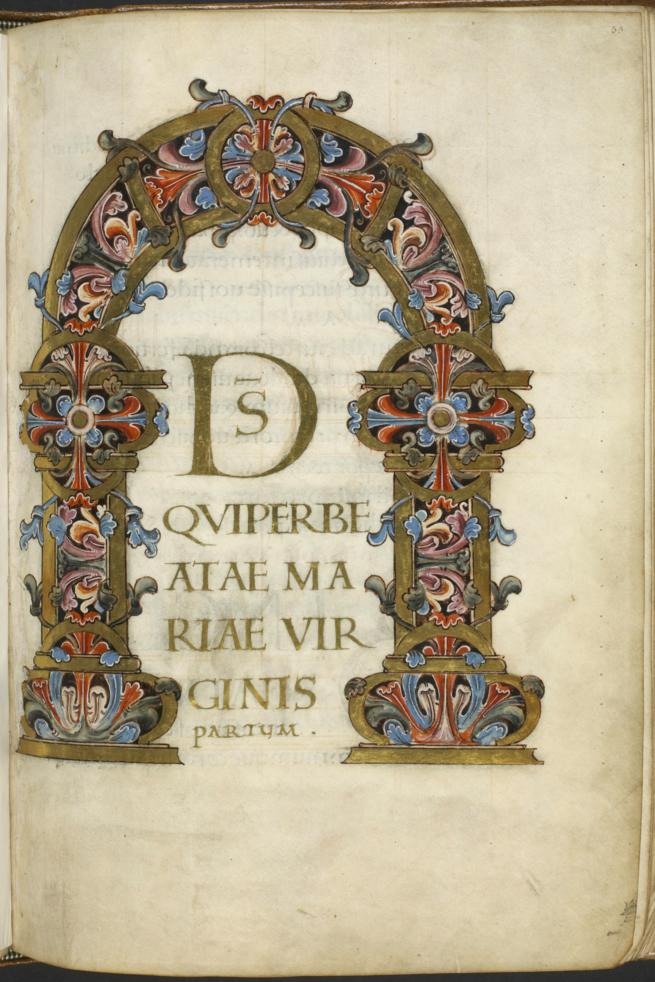 DS
QVIPERBE
ATAE MA
RIAE VIR
GINIS
PARTUM .